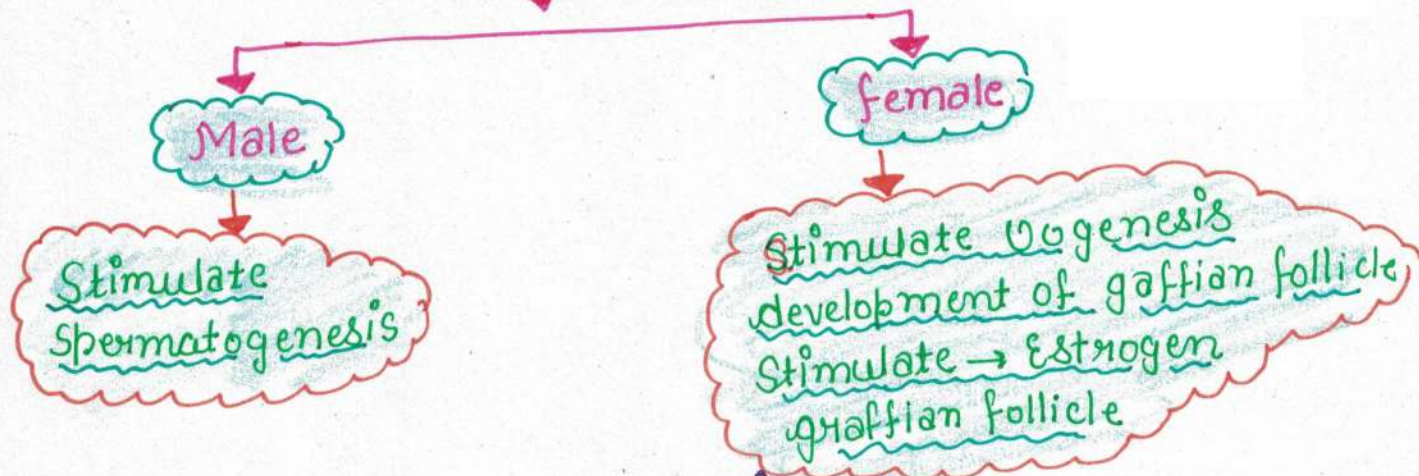 Male
female
Stimulate
Spermatogenesis
Stimulate Oogenesis
development of gaffian follicle
Stimulate → Estrogen
graffian follicle